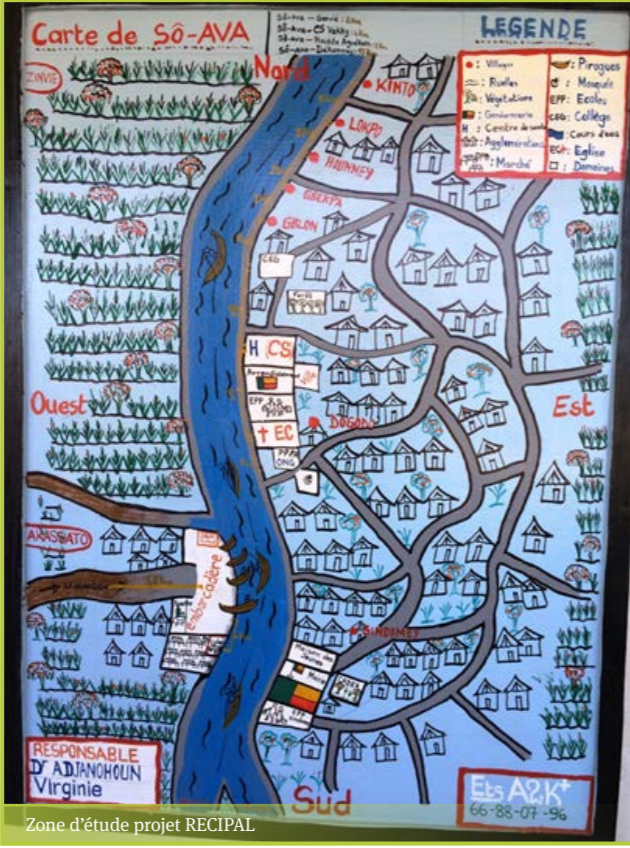 Carte de SÔ-AVA
Sô-Ava - Ganvié :
Sô-Ava - CS Vekky :
LEGENDE
: Villages
: Ruelles
: Végétations
: Gendarmerie
H : Centre de santé
: Agglomérations
: Marché
: Pirogues
: Mosquée
EPP : Ecoles
CEG : Collège
: Cours d'eau
EC+ : Eglise
: Domaines
ZINVIÉ
Nord
KINTO
LOKPO
HOUNMEY
GBEKPA
GBLON
CEG
Forêt
H CS
Arrondissement
EPP
Ouest
Est
DOGODO
† EC
ONG
AKASSATO
embarcadère
SINDOMEY
Maison des Jeunes
Mairie
RESPONSABLE
Dr ADJANOHOUN
Virginie
Sud
Ets A2K+
66-88-07-96
Zone d'étude projet RECIPAL